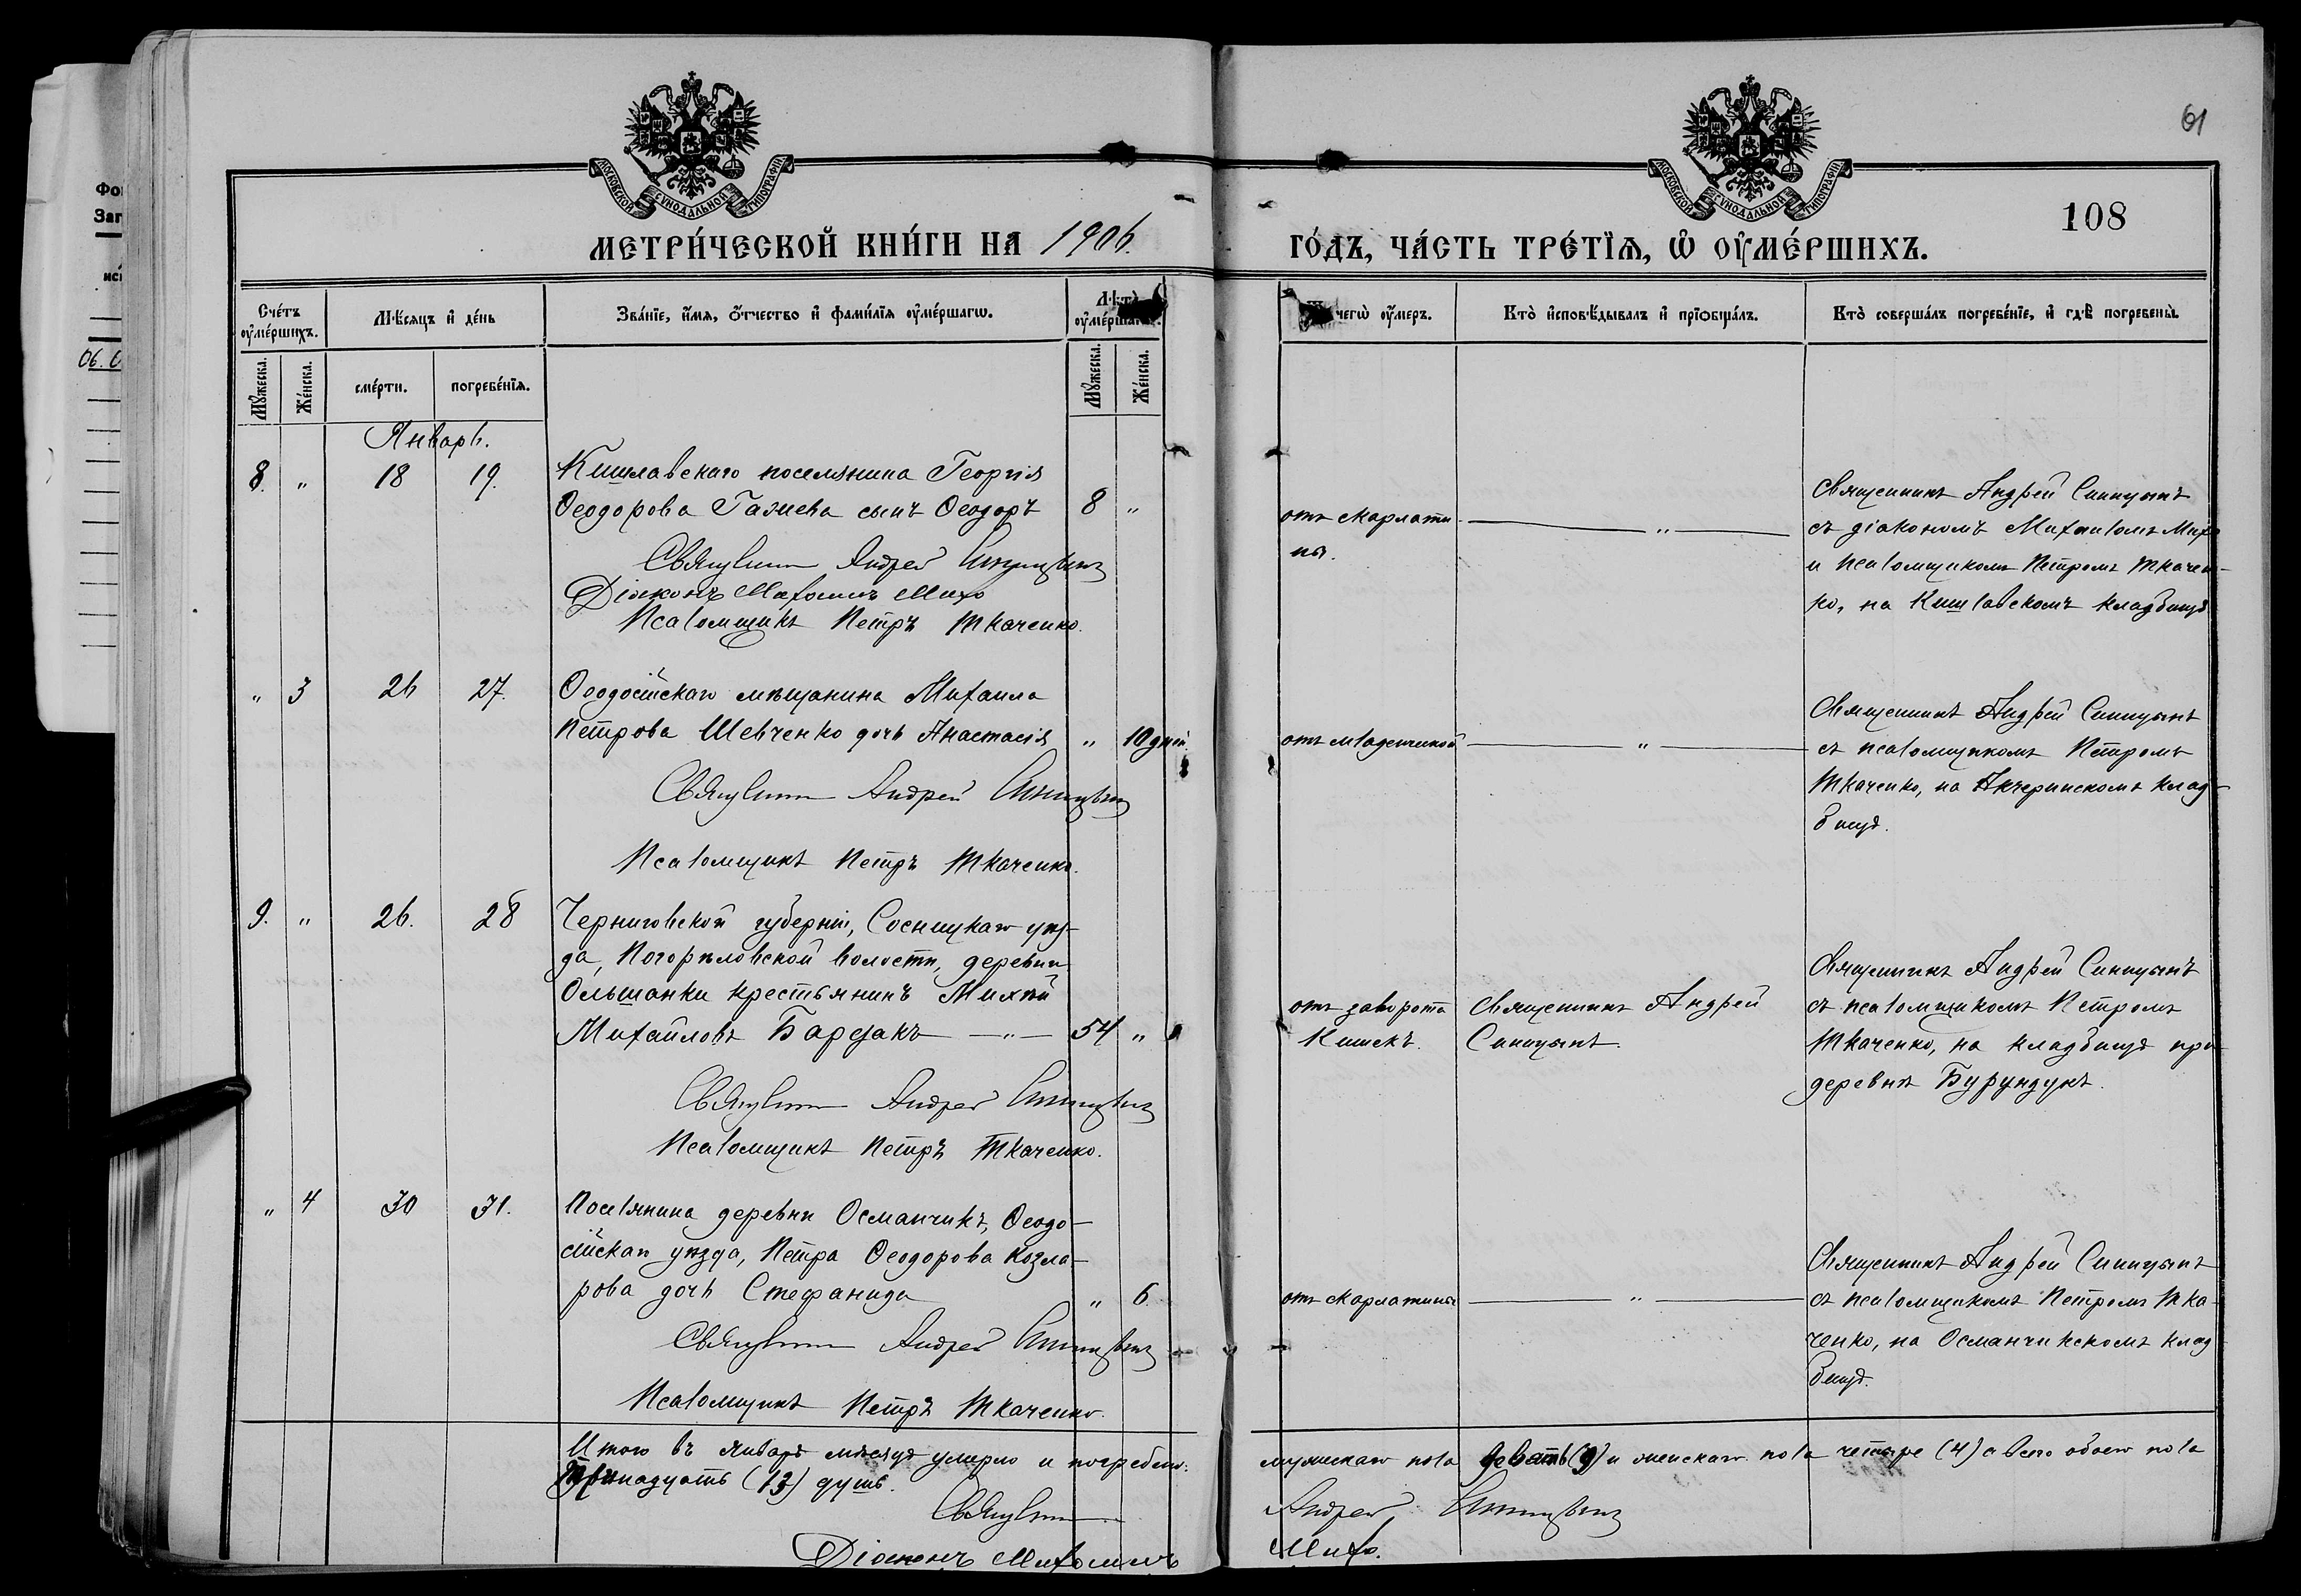 61
108
МОСКОВСКОЙ СѴНОДАЛЬНОЙ ТИПОГРАФІИ
МОСКОВСКОЙ СѴНОДАЛЬНОЙ ТИПОГРАФІИ
МЕТРИ́ЧЕСКОЙ КНИ́ГИ НА 1906.
ГО́ДЪ, ЧА́СТЬ ТРЕ́ТЇѦ, Ѡ҆ ОУ҆МЕ́РШИХЪ.
Сче́тъ оу҆ме́ршихъ.
Мꙋ́жеска.
Же́нска.
Мѣ́сяцъ и҆ де́нь
сме́рти.
погребе́нїѧ.
Зва́нїе, и҆́мѧ, о҆́тчество и҆ фами́лїѧ оу҆ме́ршагѡ.
Лѣ́та оу҆ме́ршагѡ.
Мꙋ́жеска.
Же́нска.
чегѡ̀ оу҆́меръ.
Кто̀ и҆сповѣ́дывалъ и҆ прїѡбща́лъ.
Кто̀ соверша́лъ погребе́нїе, и҆ гдѣ̀ погребены̀.
Январь.
8. " 18 19.
Кишлавскаго поселянина Георгія
Ѳеодорова Газиева сынъ Ѳеодоръ 8 "
Священникъ Андрей Синицынъ
Діаконъ Михаилъ Михо
Псаломщикъ Петръ Ткаченко.
отъ скарлати-
ны.
"
Священникъ Андрей Синицынъ
съ діакономъ Михаиломъ Михо
и псаломщикомъ Петромъ Ткачен-
ко, на Кишлавскомъ кладбищѣ
" 3 26 27.
Ѳеодосійскаго мѣщанина Михаила
Петрова Шевченко дочь Анастасія " 10 дней
Священникъ Андрей Синицынъ
Псаломщикъ Петръ Ткаченко.
отъ младенческой
"
Священникъ Андрей Синицынъ
съ псаломщикомъ Петромъ
Ткаченко, на Акчеринскомъ клад-
бищѣ.
9. " 26. 28
Черниговской губерніи, Сосницкаго уѣз-
да, Погорѣловской волости, деревни
Ольшанки крестьянинъ Михѣй
Михайловъ — " — 54 "
Священникъ Андрей Синицынъ
Псаломщикъ Петръ Ткаченко.
отъ заворота
Кишекъ.
Священникъ Андрей
Синицынъ.
Священникъ Андрей Синицынъ
съ псаломщикомъ Петромъ
Ткаченко, на кладбищѣ при
деревнѣ Бурундукъ.
" 4 30 31.
Поселянина деревни Османчикъ, Ѳеодо-
сійскаго уѣзда, Петра Ѳеодорова Козла-
рова дочь Стефанида " 6.
Священникъ Андрей Синицынъ
Псаломщикъ Петръ Ткаченко.
отъ скарлатины
"
Священникъ Андрей Синицынъ
съ псаломщикомъ Петромъ Тка-
ченко, на Османчикскомъ клад-
бищѣ.
Итого въ январѣ мѣсяцѣ умерло и погребено: мужескаго пола девять (9) и женскаго пола четыре (4) а всего обоего пола
тринадцать (13) душъ.
Священникъ Андрей Синицынъ
Діаконъ Михаилъ Михо.